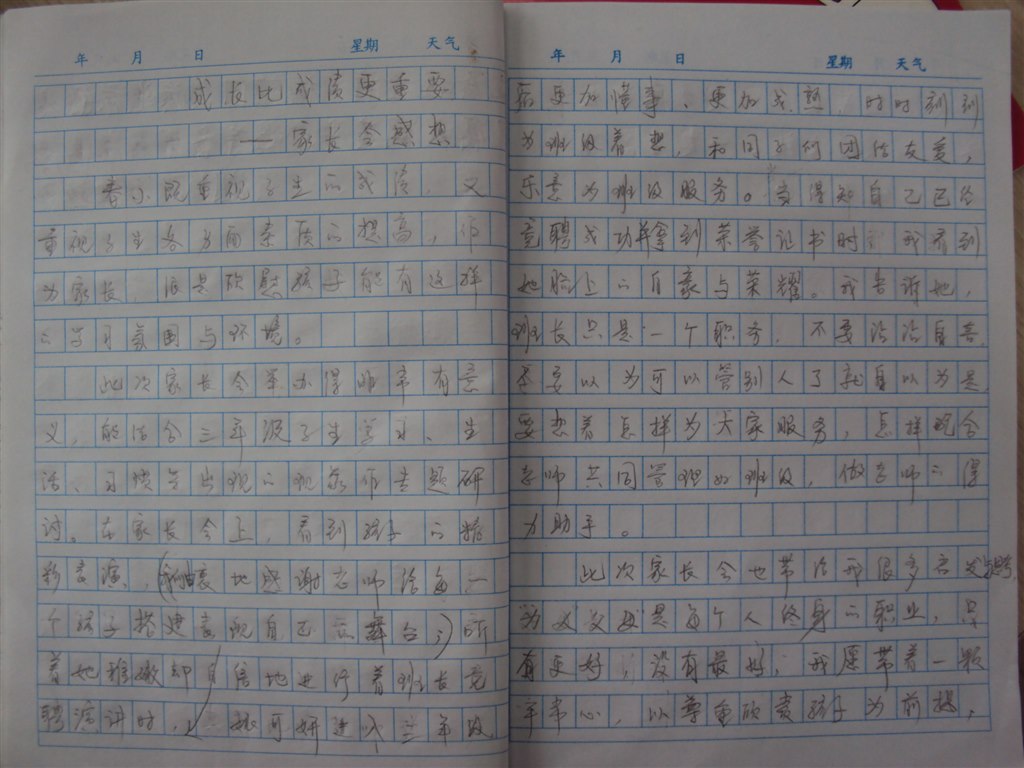 年 月 日 星期 天气
成长比成绩更重要
——家长会感想
春小既重视学生的成绩，又
重视学生各方面素质的提高，作
为家长，很是欣慰孩子能有这样
的学习氛围与环境。
此次家长会举办得非常有意
义，能结合三年级学生学习、生
活、习惯等出现的现象作专题研
讨。在家长会上，看到孩子的精
彩表演，我由衷地感谢老师给每一
个孩子搭建表现自己的舞台；听
着她稚嫩却自信地进行着班长竞
聘演讲时，
三年级
年 月 日 星期 天气
后更加懂事、更加成熟，时时刻刻
为班级着想，和同学们团结友爱，
乐意为班级服务。当得知自己已经
竞聘成功并拿到荣誉证书时，我看到
她脸上的自豪与荣耀。我告诉她，
班长只是一个职务，不要沾沾自喜，
不要以为可以管别人了就自以为是
要想着怎样为大家服务，怎样配合
老师共同管理好班级，做老师的得
力助手。
此次家长会也带给我很多启发思考，
为父为母是每个人终身的职业，只
有更好，没有最好，我愿带着一颗
平常心，以尊重欣赏孩子为前提，